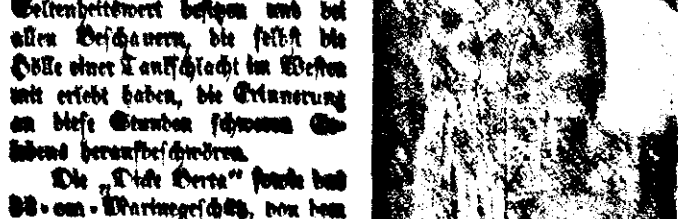 Seltenheitswert besitzen und bei
allen Beschauern, die selbst die
Hölle einer Tankschlacht im Westen
mit erlebt haben, die Erinnerung
an diese Stunden schweren Er-
lebens heraufbeschwören.
Die „Dicke Berta“ sowie das
38-cm-Marinegeschütz, von dem